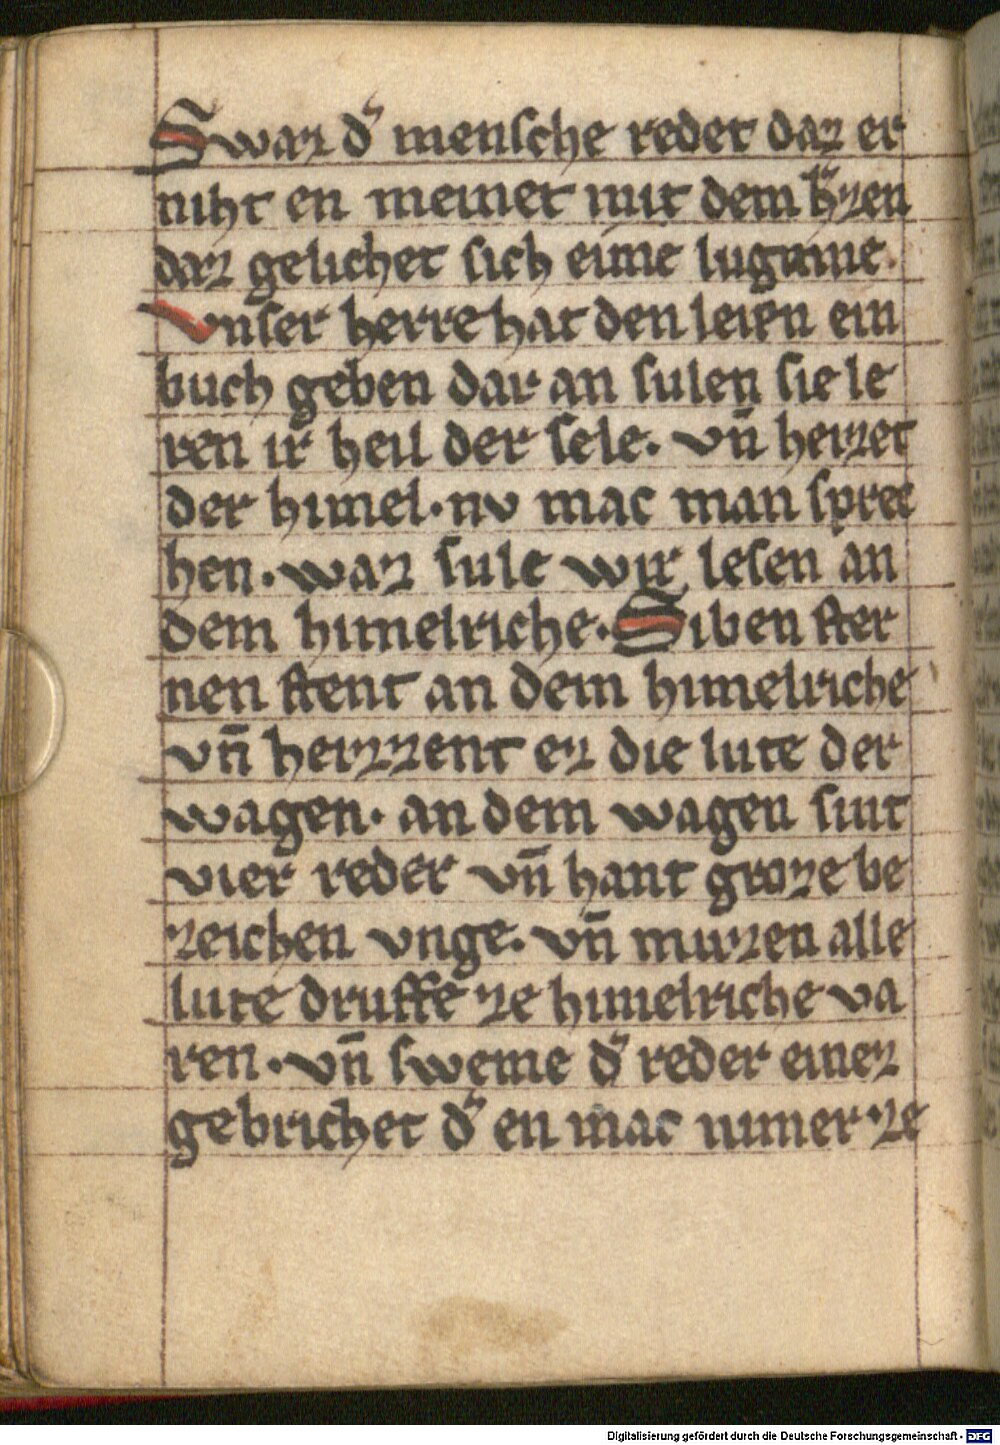 Swaz d᾽ mensche redet daz er
niht en meinet mit dem h᾽zen
daz gelichet sich eime lugenne.
Vnser herre hat den leien ein
buch geben dar an sulen sie le
ren ir heil der sele. vn̄ heizet
der himel. nv mac man spree
hen. waz sule wir lesen an
dem himelriche. Siben ster
nen stent an dem himelriche
vn̄ heizzent ez die lute der
wagen. an dem wagen sint
vier reder vn̄ hant groze be
zeichen vnge. vn̄ muzen alle
lute druffe ze himelriche va
ren. vn̄ sweme d᾽ reder einez
gebrichet d᾽ en mac nimer ze
Digitalisierung gefördert durch die Deutsche Forschungsgemeinschaft - DFG